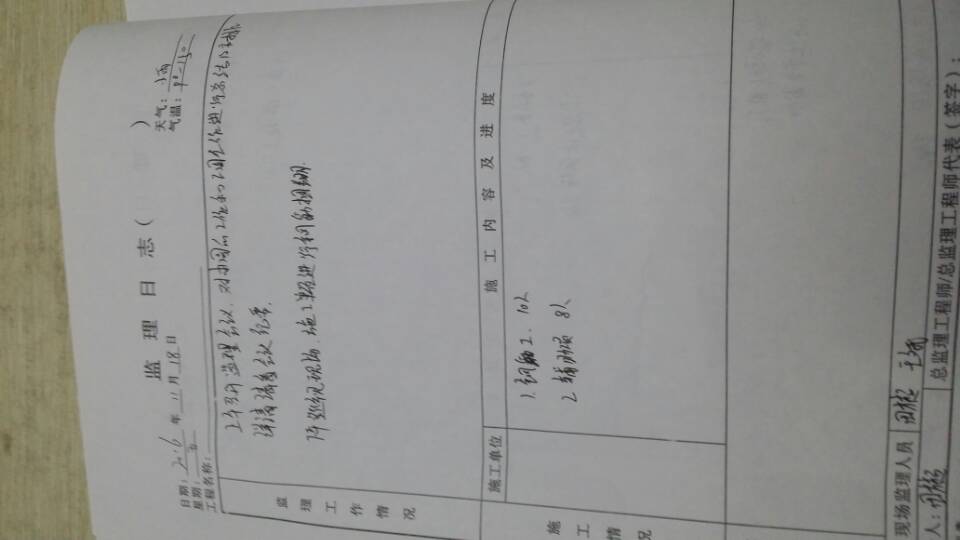 监 理 日 志 ( )
日期: 2016 年 11 月 18 日
天气: 小雨
星期: 五
气温: 9°-13°
工程名称:
监理工作情况
上午召开监理会议,对本周工作和下周工作进行总结及安排
详请请看会议纪要.
下午巡视现场,施工单位进行钢筋绑扎.
施工情况
施工单位
施 工 内 容 及 进 度
1.钢筋工.10人
2.辅助工 8人
现场监理人员
总监理工程师/总监理工程师代表(签字):
人: